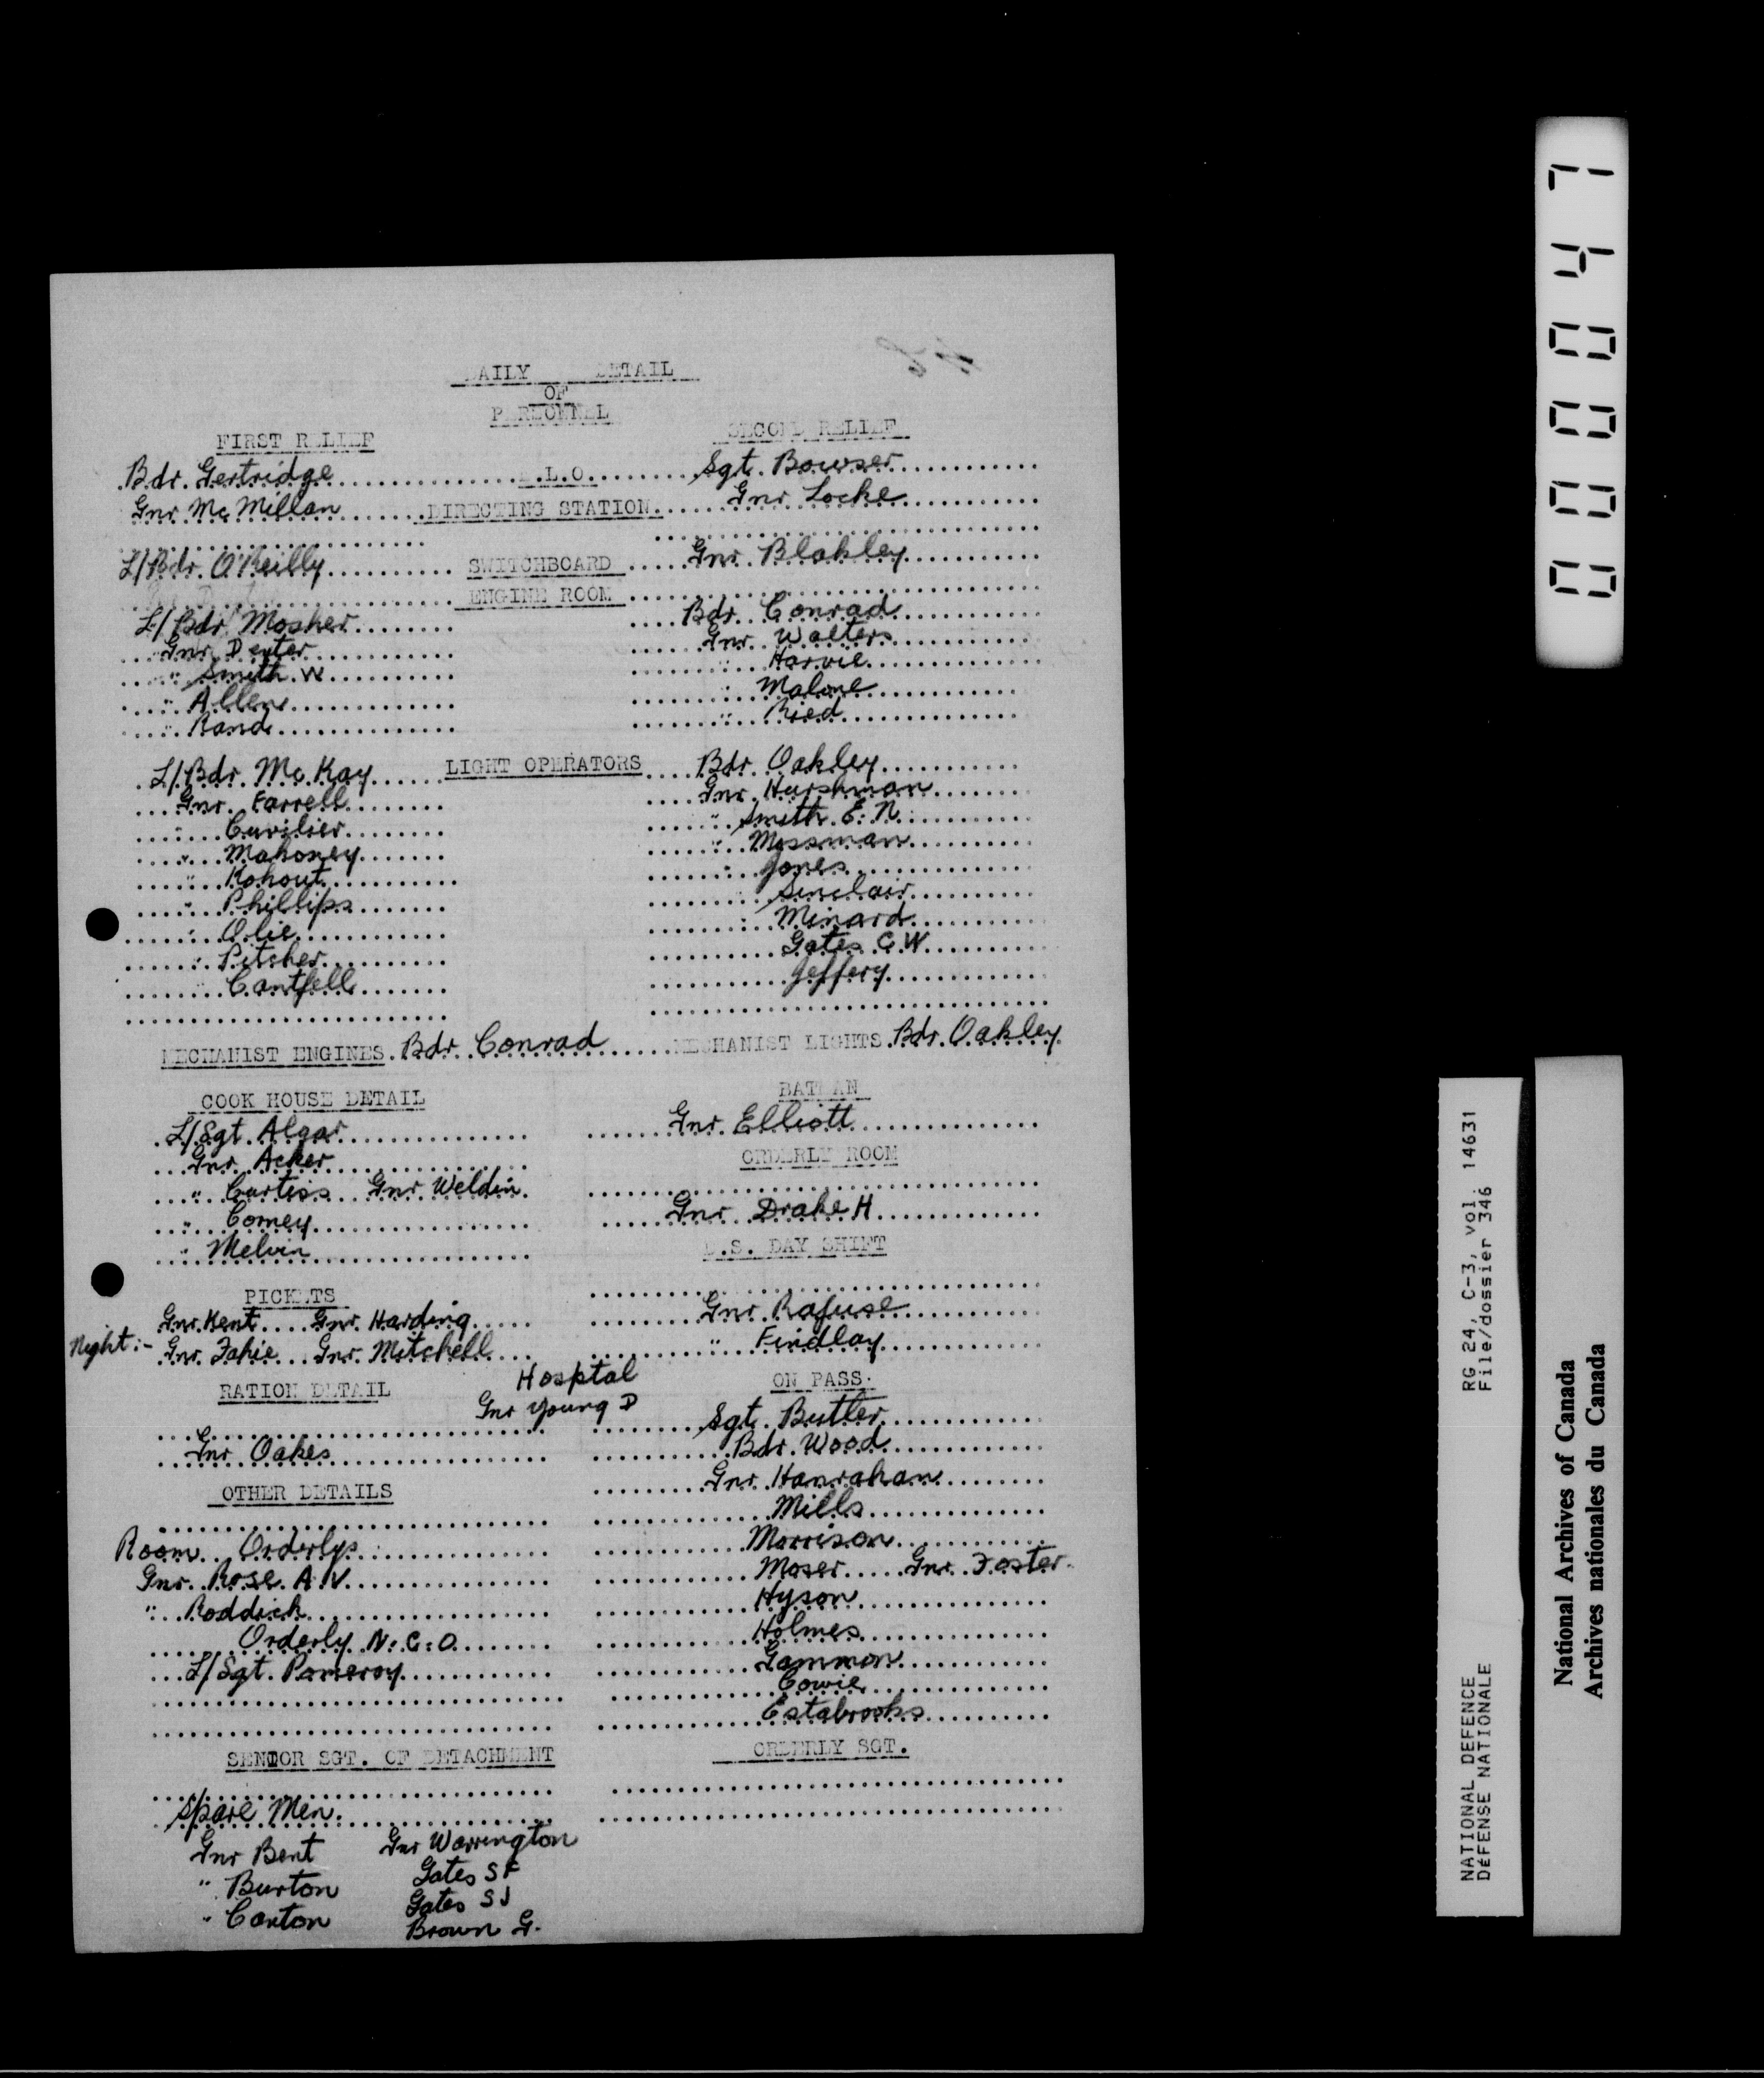 DAILY DETAIL
OF
PERSONNEL
FIRST RELIEF SECOND RELIEF
Bdr. Gertridge .L.O. Sgt. Bowser
Gnr McMillan DIRECTING STATION Gnr Locke
L/Bdr. O'Reilly SWITCHBOARD Gnr. Blakley
ENGINE ROOM
L/Bdr Mosher Bdr. Conrad
Gnr Dexter Gnr. Walters
" Smith W " Harvie
" Allen " Malone
" Rand " Ried
L/Bdr. McKay LIGHT OPERATORS Bdr. Oakley
Gnr. Farrell Gnr. Harshman
" Cuvilier " Smith. E. N.
" Mahoney " Mossman
" Kohout " Jones
" Phillips " Sinclair
" Olie " Minard
" Pitcher Gates C.W
Cantfell Jeffery
MECHANIST ENGINES. Bdr. Conrad MECHANIST LIGHTS. Bdr. Oakley
COOK HOUSE DETAIL BATMAN
L/Sgt. Algar Gnr. Elliott
Gnr Acker ORDERLY ROOM
" Curtiss Gnr Weldin
" Comey Gnr Drake H
" Melvin .S. DAY SHIFT
PICKETS
Gnr. Kent Gnr. Harding Gnr Rafuse
Night:- Gnr. Fahie Gnr. Mitchell " Findlay
RATION DETAIL Hosptal ON PASS.
Gnr Young D Sgt. Butler
Gnr Oakes Bdr. Wood
Gnr Hanrahan
OTHER DETAILS Mills
Room Orderlys Morrison
Gnr. Rose A N Moser Gnr. Foster
" Roddick Hyson
Orderly N.C.O. Holmes
L/Sgt. Pomeroy Gammon
Cowie
Estabrooks
SENIOR SGT. OF DETACHMENT ORDERLY SGT.
Spare Men.
Gnr Bent Gnr Warrington
" Burton Gates S F
" Canton Gates S J
Brown G.
000047
RG 24, C-3, vol. 14631
File/dossier 346
NATIONAL DEFENCE
DÉFENSE NATIONALE
National Archives of Canada
Archives nationales du Canada